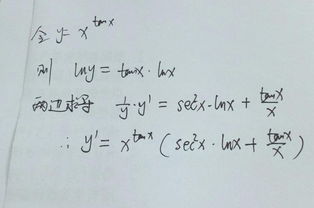 令 y = x^{tanx}
则 lny = tanx · lnx
两边求导 \frac{1}{y} · y' = sec²x · lnx + \frac{tanx}{x}
∴ y' = x^{tanx} ( sec²x · lnx + \frac{tanx}{x} )